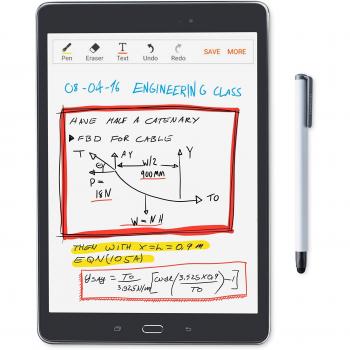 Pen Eraser Text Undo Redo SAVE MORE
08-04-16 ENGINEERING CLASS
HAVE HALF A CATENARY
▶FBD FOR CABLE
T AY W/2 Y
900MM
P=
18N
TO
W=NH
THEN WITH X=L=0.9 M
EQN(10.5A)
YSAG = TO
3.925N/M
3.925X0.9
TO
-1